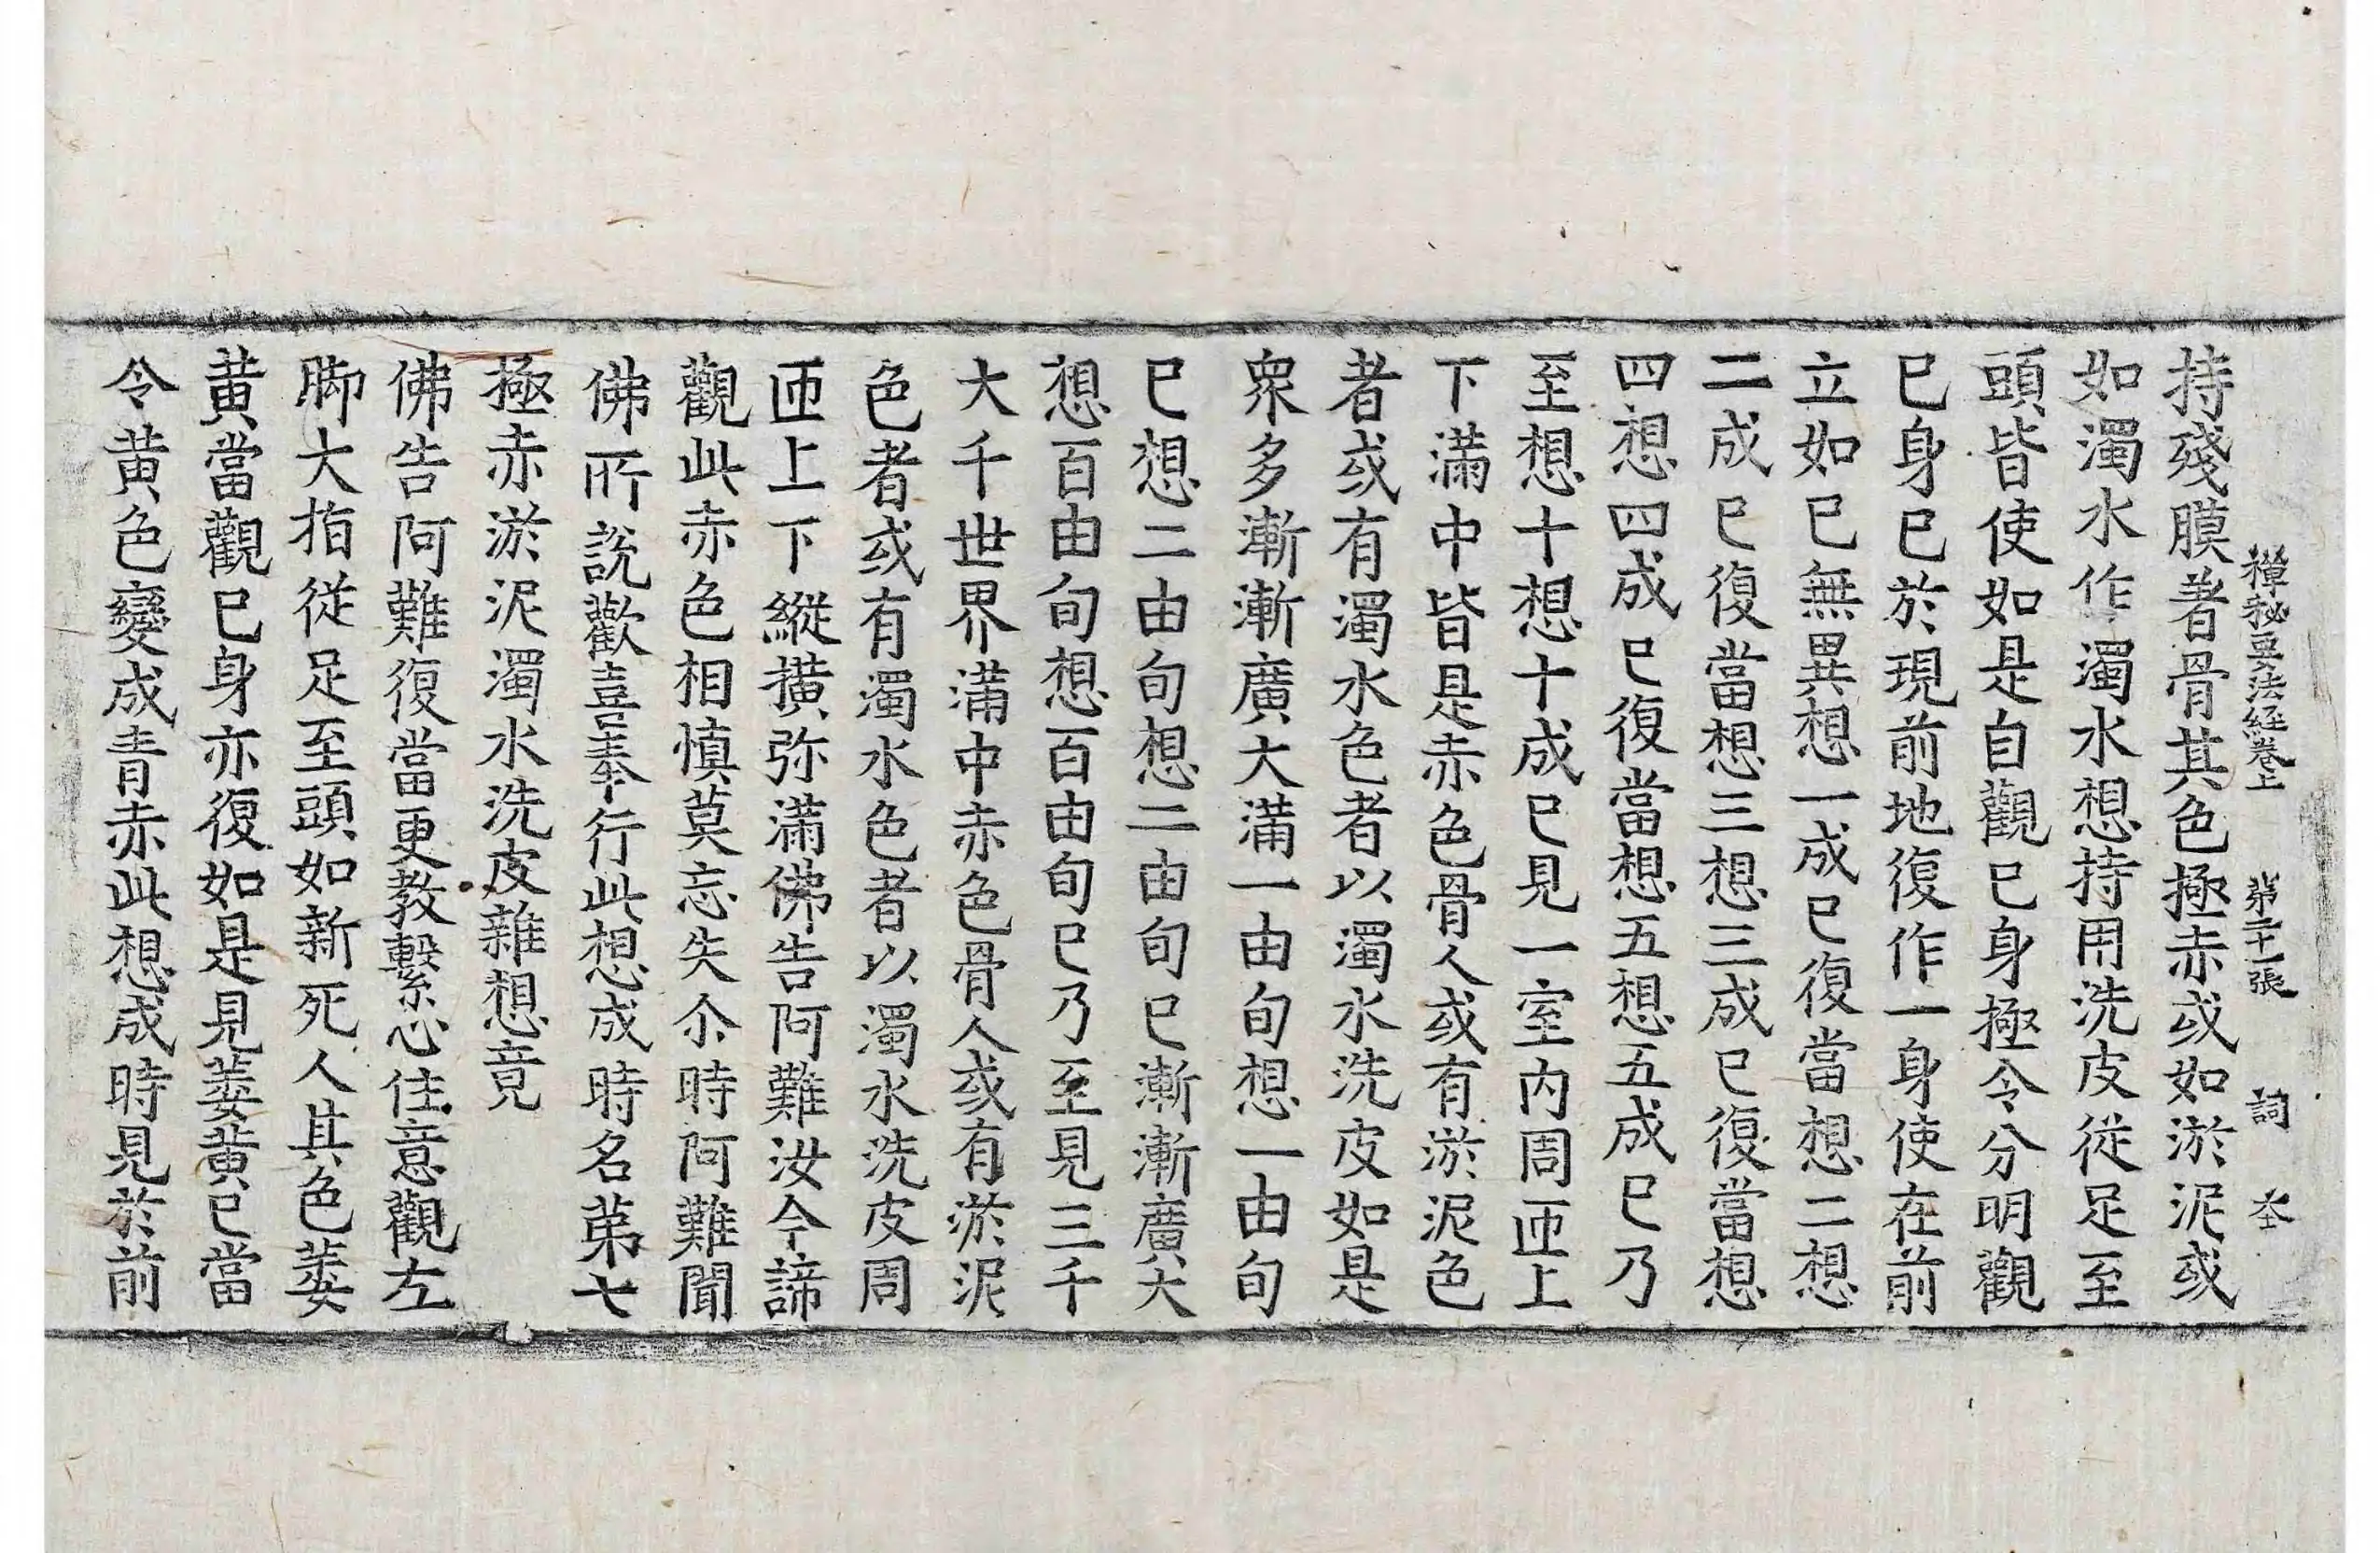 禪秘要法經卷上 第二十一張 詞
持殘膜著骨其色極赤或如淤泥或
如濁水作濁水想持用洗皮從足至
頭皆使如是自觀已身極令分明觀
已身已於現前地復作一身使在前
立如已無異想一成已復當想二想
二成已復當想三想三成已復當想
四想四成已復當想五想五成已乃
至想十想十成已見一室內周匝上
下滿中皆是赤色骨人或有淤泥色
者或有濁水色者以濁水洗皮如是
眾多漸漸廣大滿一由旬想一由旬
已想二由旬想二由旬已漸漸廣大
想百由旬想百由旬已乃至見三千
大千世界滿中赤色骨人或有淤泥
色者或有濁水色者以濁水洗皮周
匝上下縱擴弥滿佛告阿難汝今諦
觀此赤色相慎莫忘失尒時阿難聞
佛所說歡喜奉行此想成時名第七
極赤淤泥濁水洗皮雜想竟
佛告阿難復當更教繫心住意觀左
脚大指從足至頭如新死人其色萎
黃當觀已身亦復如是見萎黃已當
令黃色變成青赤此想成時見於前